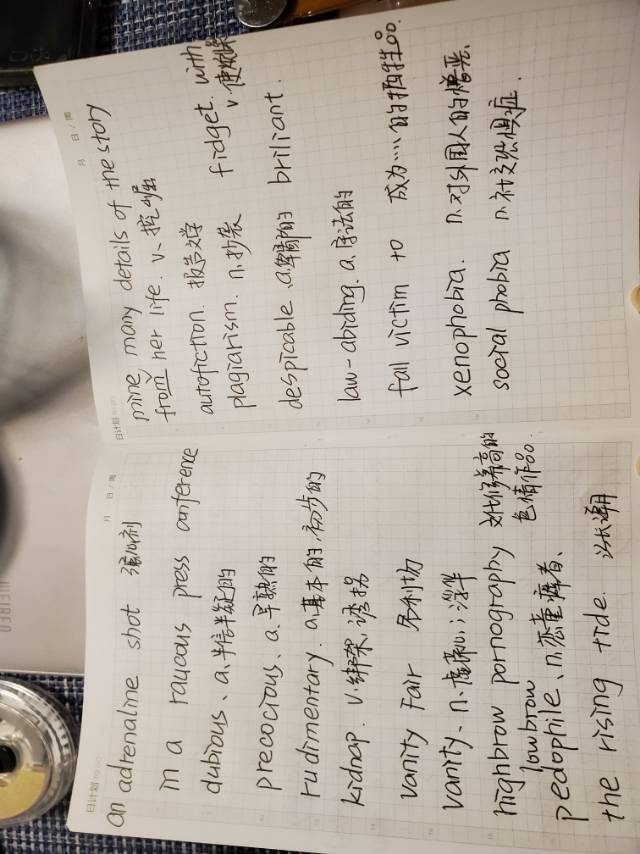 日计划
月 日/周
an adrenaline shot 强心剂
in a raucous press conference
dubious、a.半信半疑的
precocious、a.早熟的
rudimentary. a.基本的.初步的
kidnap. v.绑架.诱拐
vanity Fair 名利场
vanity、n.虚荣心；浮华
highbrow pornography 文化修养高的
色情作品.
lowbrow
pedophile、n.恋童癖者、
the rising tide.
日计划
月 日/周
mine many details of the story
from her life. v、挖掘
autofiction. 报告文学
plagiarism. n.抄袭 fidget. with
v.使烦躁
despicable .a.卑鄙的 briliant.
law-abiding. a.守法的
fall victim to 成为……的牺牲品.
xenophobia. n.对外国人的憎恶、
social phobia n.社交恐惧症.